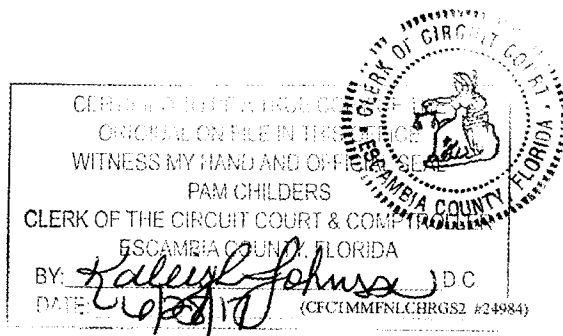 CLERK OF CIRCUIT COURT
ESCAMBIA COUNTY, FLORIDA
CERTIFIED TO BE A TRUE COPY OF THE
ORIGINAL ON FILE IN THIS OFFICE
WITNESS MY HAND AND OFFICIAL SEAL
PAM CHILDERS
CLERK OF THE CIRCUIT COURT & COMPTROLLER
ESCAMBIA COUNTY, FLORIDA
BY: Kaleigh Johnson D.C.
DATE:
(CFCTMMFNLCHRGS2 #24984)